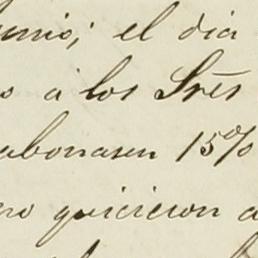 unio; el dia
s a los Sres
abonasen 15%
no quicieron a